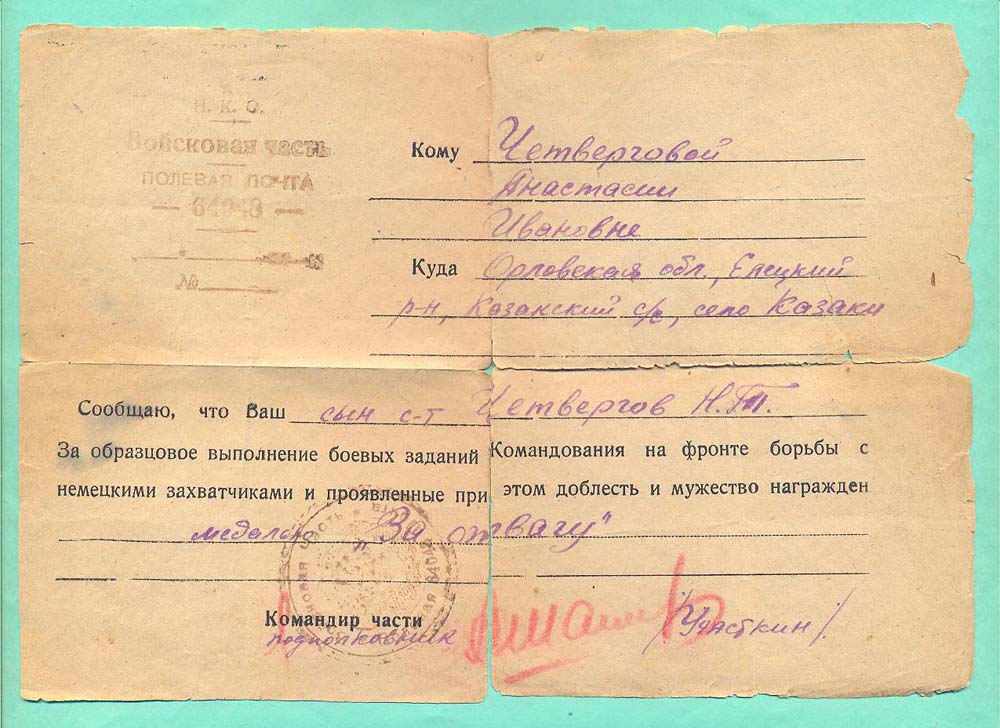 Н. К. О.
Войсковая часть
ПОЛЕВАЯ ПОЧТА
№
Кому Четверговой
Анастасии
Ивановне
Куда Орловская обл., Елецкий
р-н, Казакский с/с, село Казаки
Сообщаю, что Ваш сын с-т Четвергов Н.
За образцовое выполнение боевых заданий Командования на фронте борьбы с
немецкими захватчиками и проявленные при этом доблесть и мужество награжден
медалью „За отвагу"
Командир части
подполковник
/Участкин/